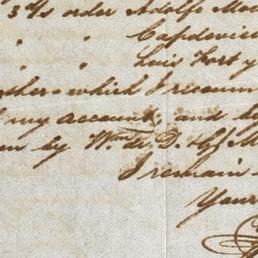 3 c/s order Adolfo Mo
" " Capdevie
" " Luis Fort y
other which I recom
my account; and
by Wm D.
I remain
Your